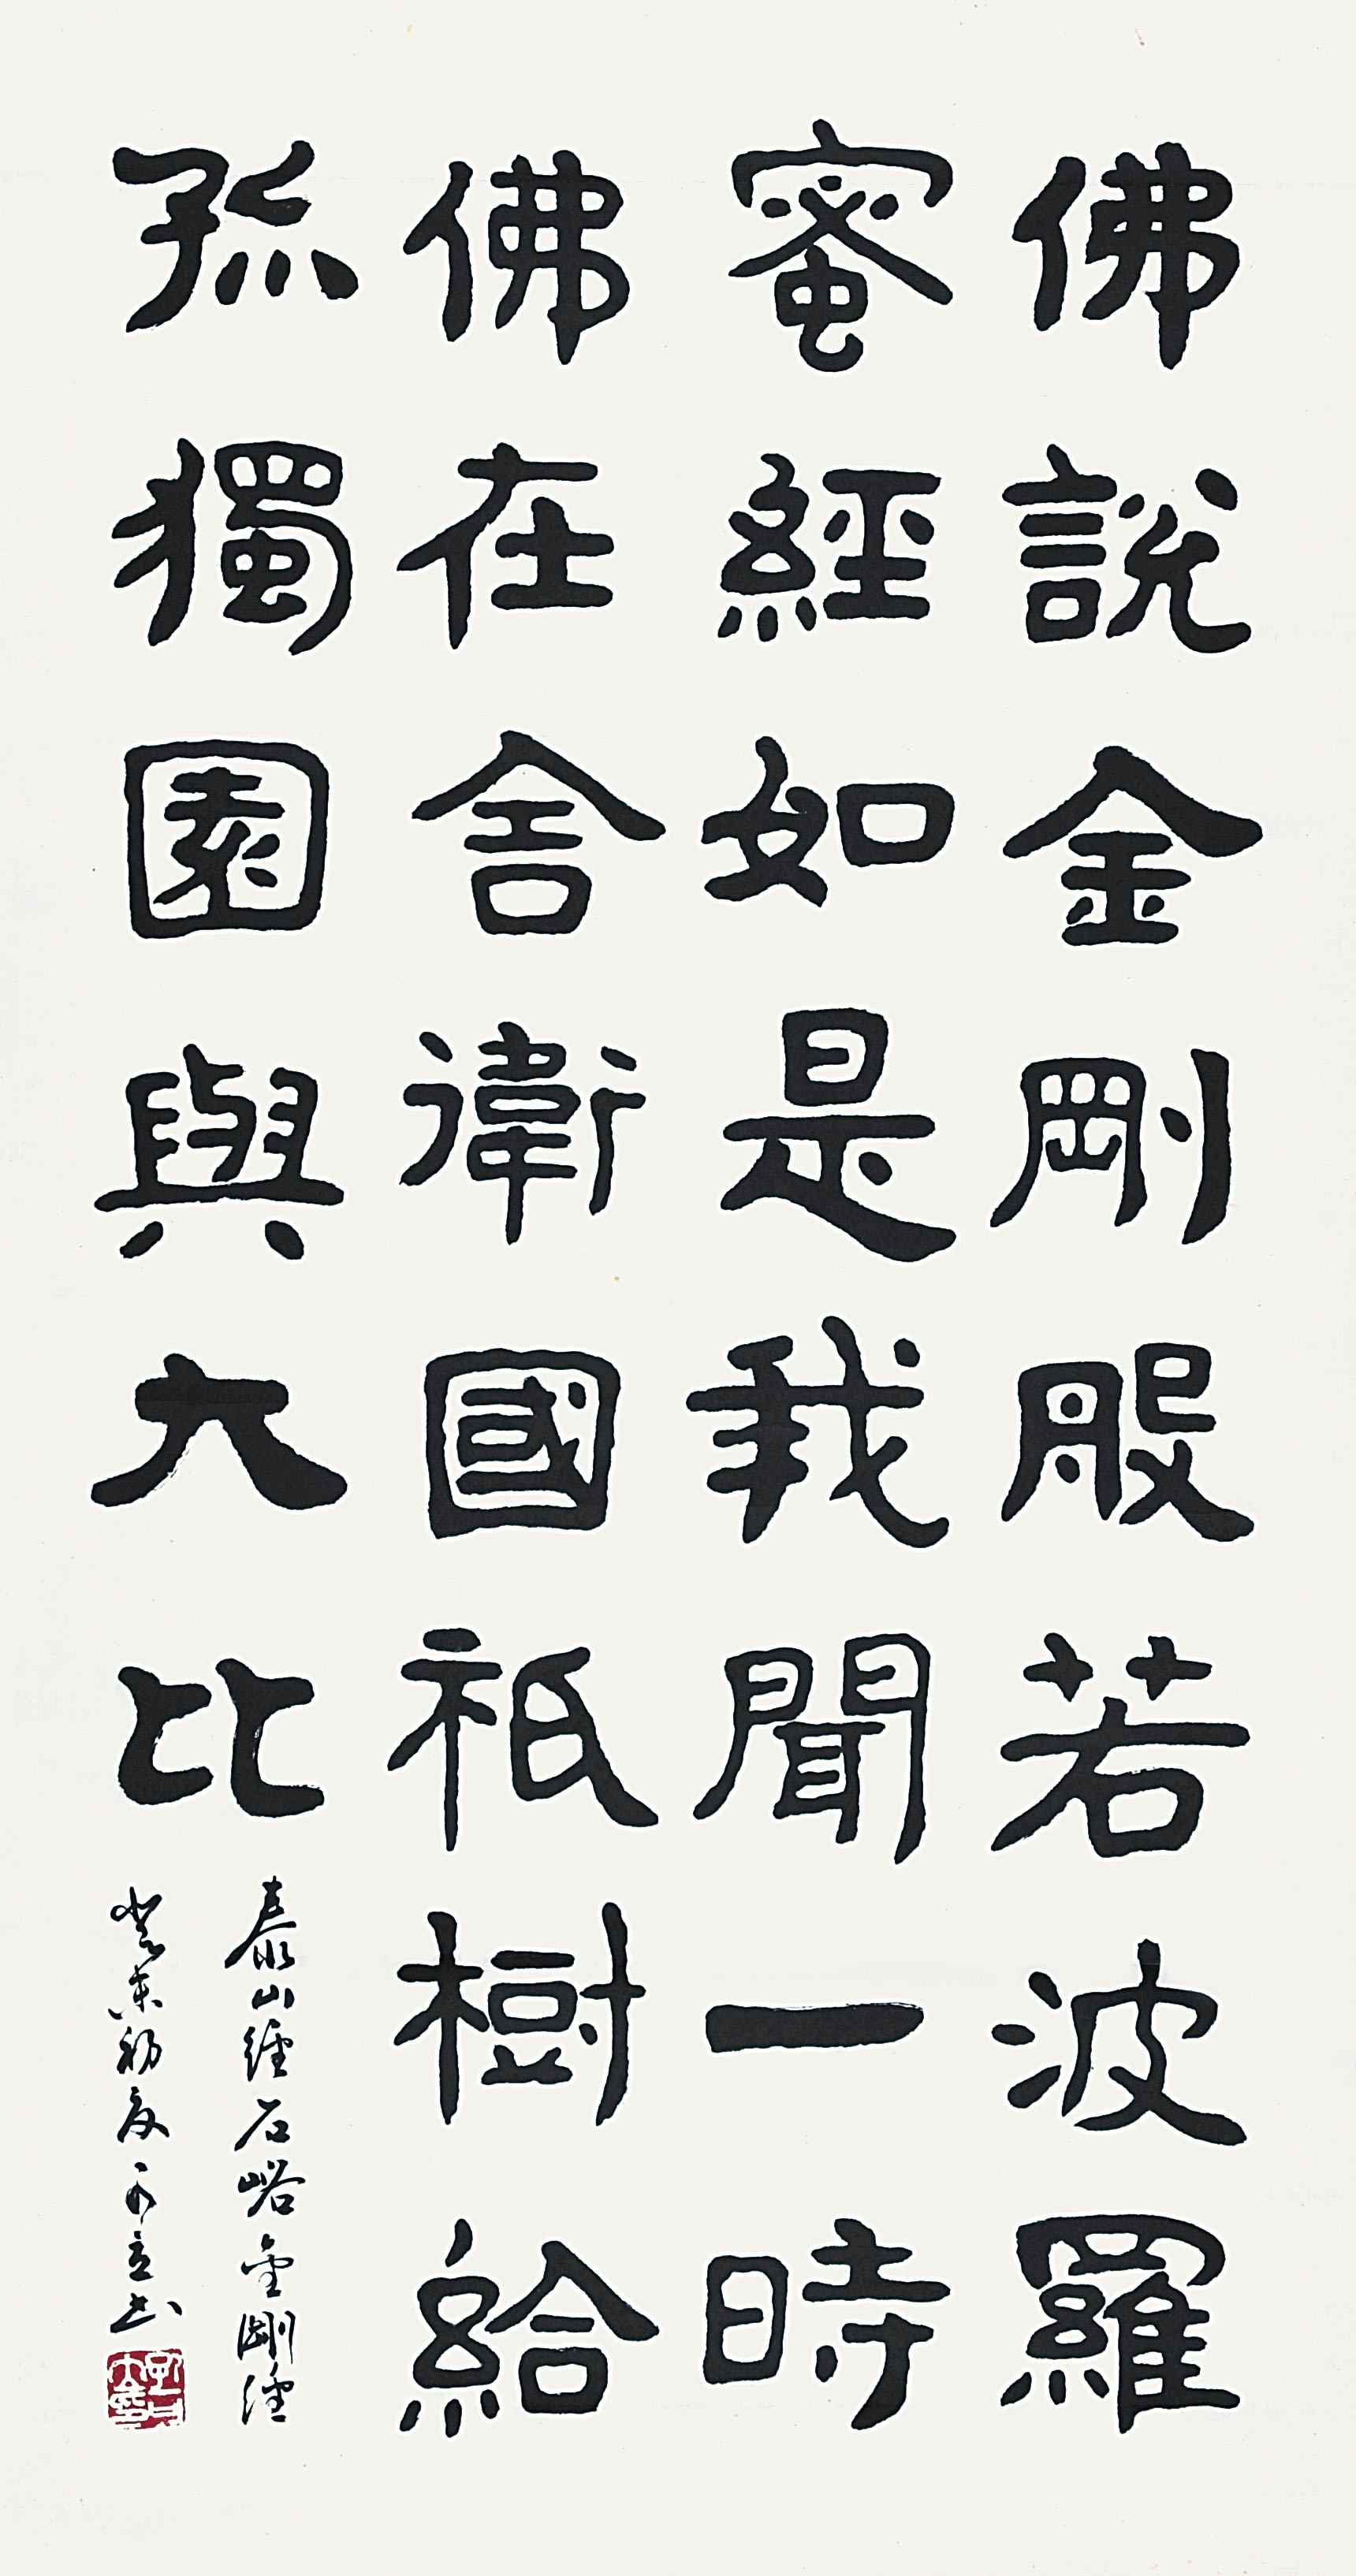 佛說金剛般若波羅
蜜經如是我聞一時
佛在舍衛國祇樹給
孤獨園與大比
泰山經石峪金剛經
癸未初夏